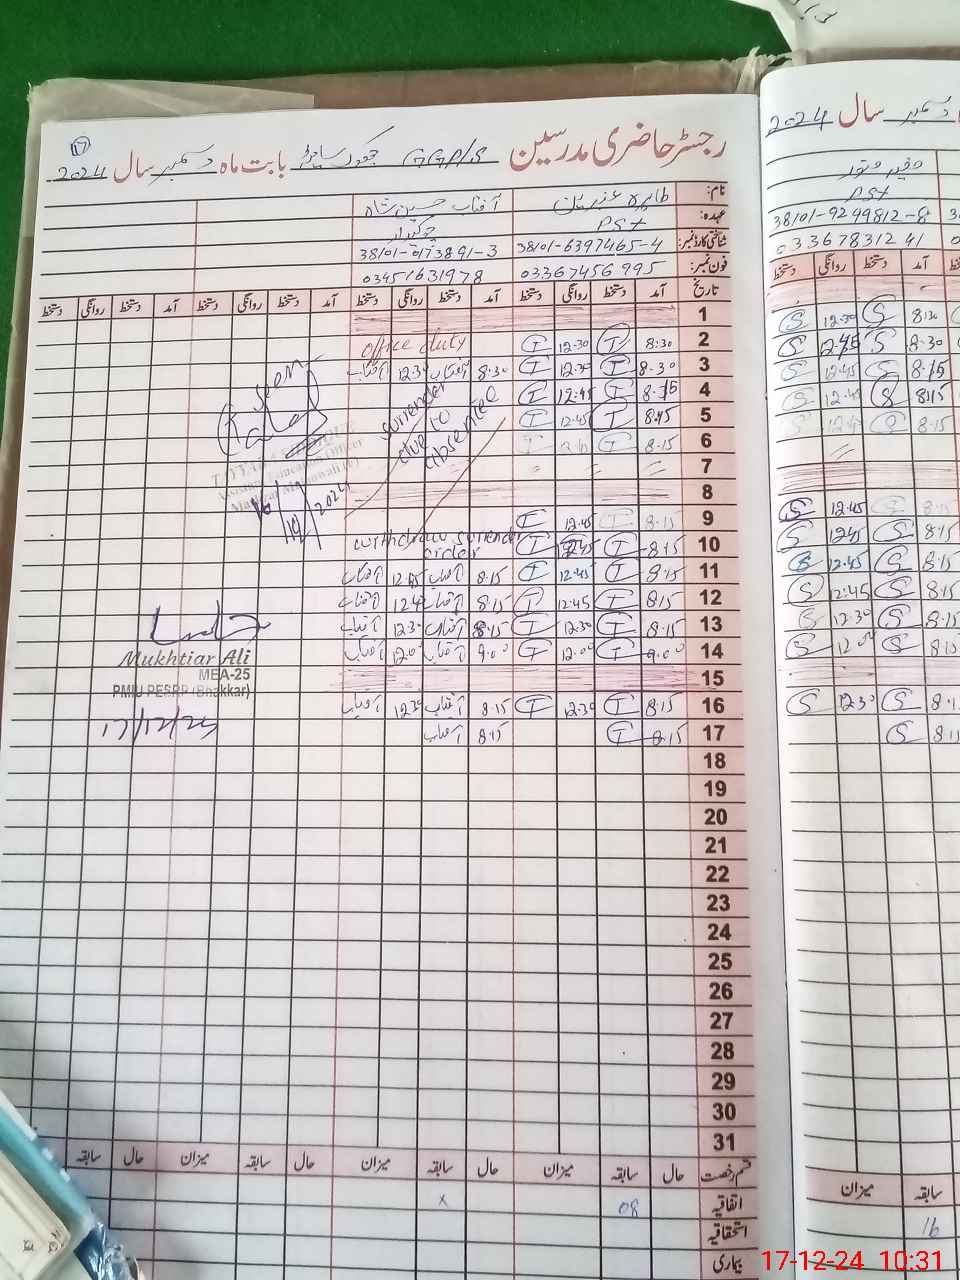 رجسٹر حاضری مدرسین GGP/S بابت ماہ دسمبر سال 2024
17
نام: طاہرہ آفتاب حسین شاہ
عہدہ: PST چوکیدار
شناختی کارڈ نمبر: 38101-6397465-4 38101-0173891-3
فون نمبر: 03367456995 03451631978
تاریخ آمد دستخط روانگی دستخط آمد دستخط روانگی دستخط آمد دستخط روانگی دستخط آمد دستخط روانگی دستخط
1
2 8:30 T 12:30 T office duty
3 8:30 T 12:30 T 8:30 آفتاب 12:30 آفتاب
4 8:15 T 12:45 T
5 8:45 T 12:45 T
6 8:15 T 12:45 T
surrender
due to
absentee
7
8
9 8:15 T 12:45 T
10 8:15 T 12:45 T withdraw surrender
order
11 8:15 T 12:45 T 8:15 آفتاب 12:45 آفتاب
12 8:15 T 12:45 T 8:15 آفتاب آفتاب
13 8:15 T 12:30 T 8:15 آفتاب 12:30 آفتاب
14 9:00 T 12:00 T 9:00 آفتاب 12:00 آفتاب
15
16 8:15 T 12:30 T 8:15 آفتاب 12:30 آفتاب
17 8:15 T 8:15 آفتاب
18
19
20
21
22
23
24
25
26
27
28
29
30
31
Seen
Assistant Education Officer
Mukhtiar Ali
MEA-25
PMIU PESRP (Bhakkar)
17/12/24
قسم رخصت حال سابقہ میزان حال سابقہ میزان حال سابقہ میزان حال سابقہ
اتفاقیہ 08 x
استحقاقیہ
بیماری
دسمبر سال 2024
PST
38101-9249812-8
03367831241
آمد دستخط روانگی دستخط
8:30 S 12:30 S
8:30 S 12:45 S
8:15 S 12:45 S
8:15 S 12:45 S
8:15 S 12:45 S
8:15 S 12:45 S
8:15 S 12:45 S
8:15 S 12:45
8:15 S 12:45 S
8:15 S 12:30 S
S 12:00 S
S 12:30 S
8:15 S
سابقہ میزان
16
17-12-24 10:31